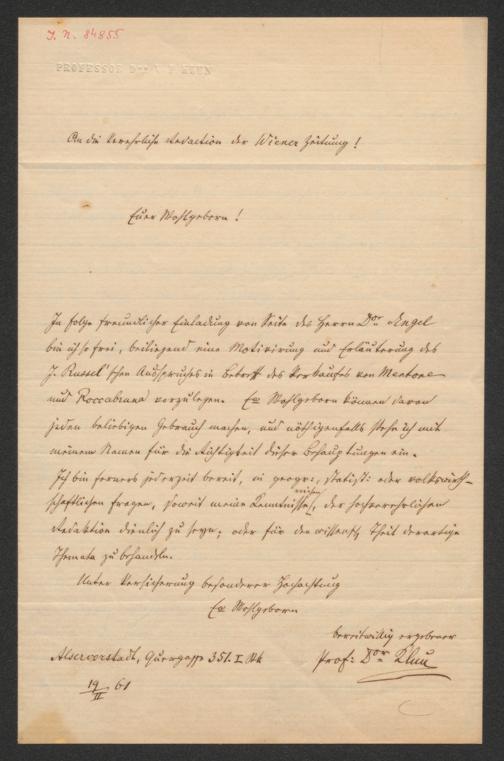 J. N. 84855
PROFESSOR Dor V. F. KLUN
An die verehrliche Redaction der Wiener Zeitung!
Euer Wohlgeborn!
In Folge freundlicher Einladung von Seite des Herrn Dor Engel
bin ich so frei, beiliegend eine Motivirung und Erläuterung des
J. Russel'schen Ausspruches in Betreff des Verkaufes von Mentone
und Roccabruna vorzulegen. Ew Wohlgeborn können davon
jeden beliebigen Gebrauch machen, und nöthigenfalls stehe ich mit
meinem Namen für die Richtigkeit dieser Behauptungen ein.
Ich bin ferners jederzeit bereit, in geogr:, statist: oder volkswirth-
schaftlichen Fragen, soweit meine Kenntnisse reichen, der hochverehrlichen
Redaktion dienlich zu seyn, oder für den wissensch. Theil derartige
Themata zu behandeln.
Unter Versicherung besonderer Hochachtung
Ew Wohlgeborn
bereitwillig ergebener
Alservorstadt, Quergasse 351. I. Stk
Prof: Dor Klun
19/II 61